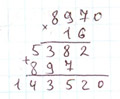 8970
× 16
5382
+ 897
143520